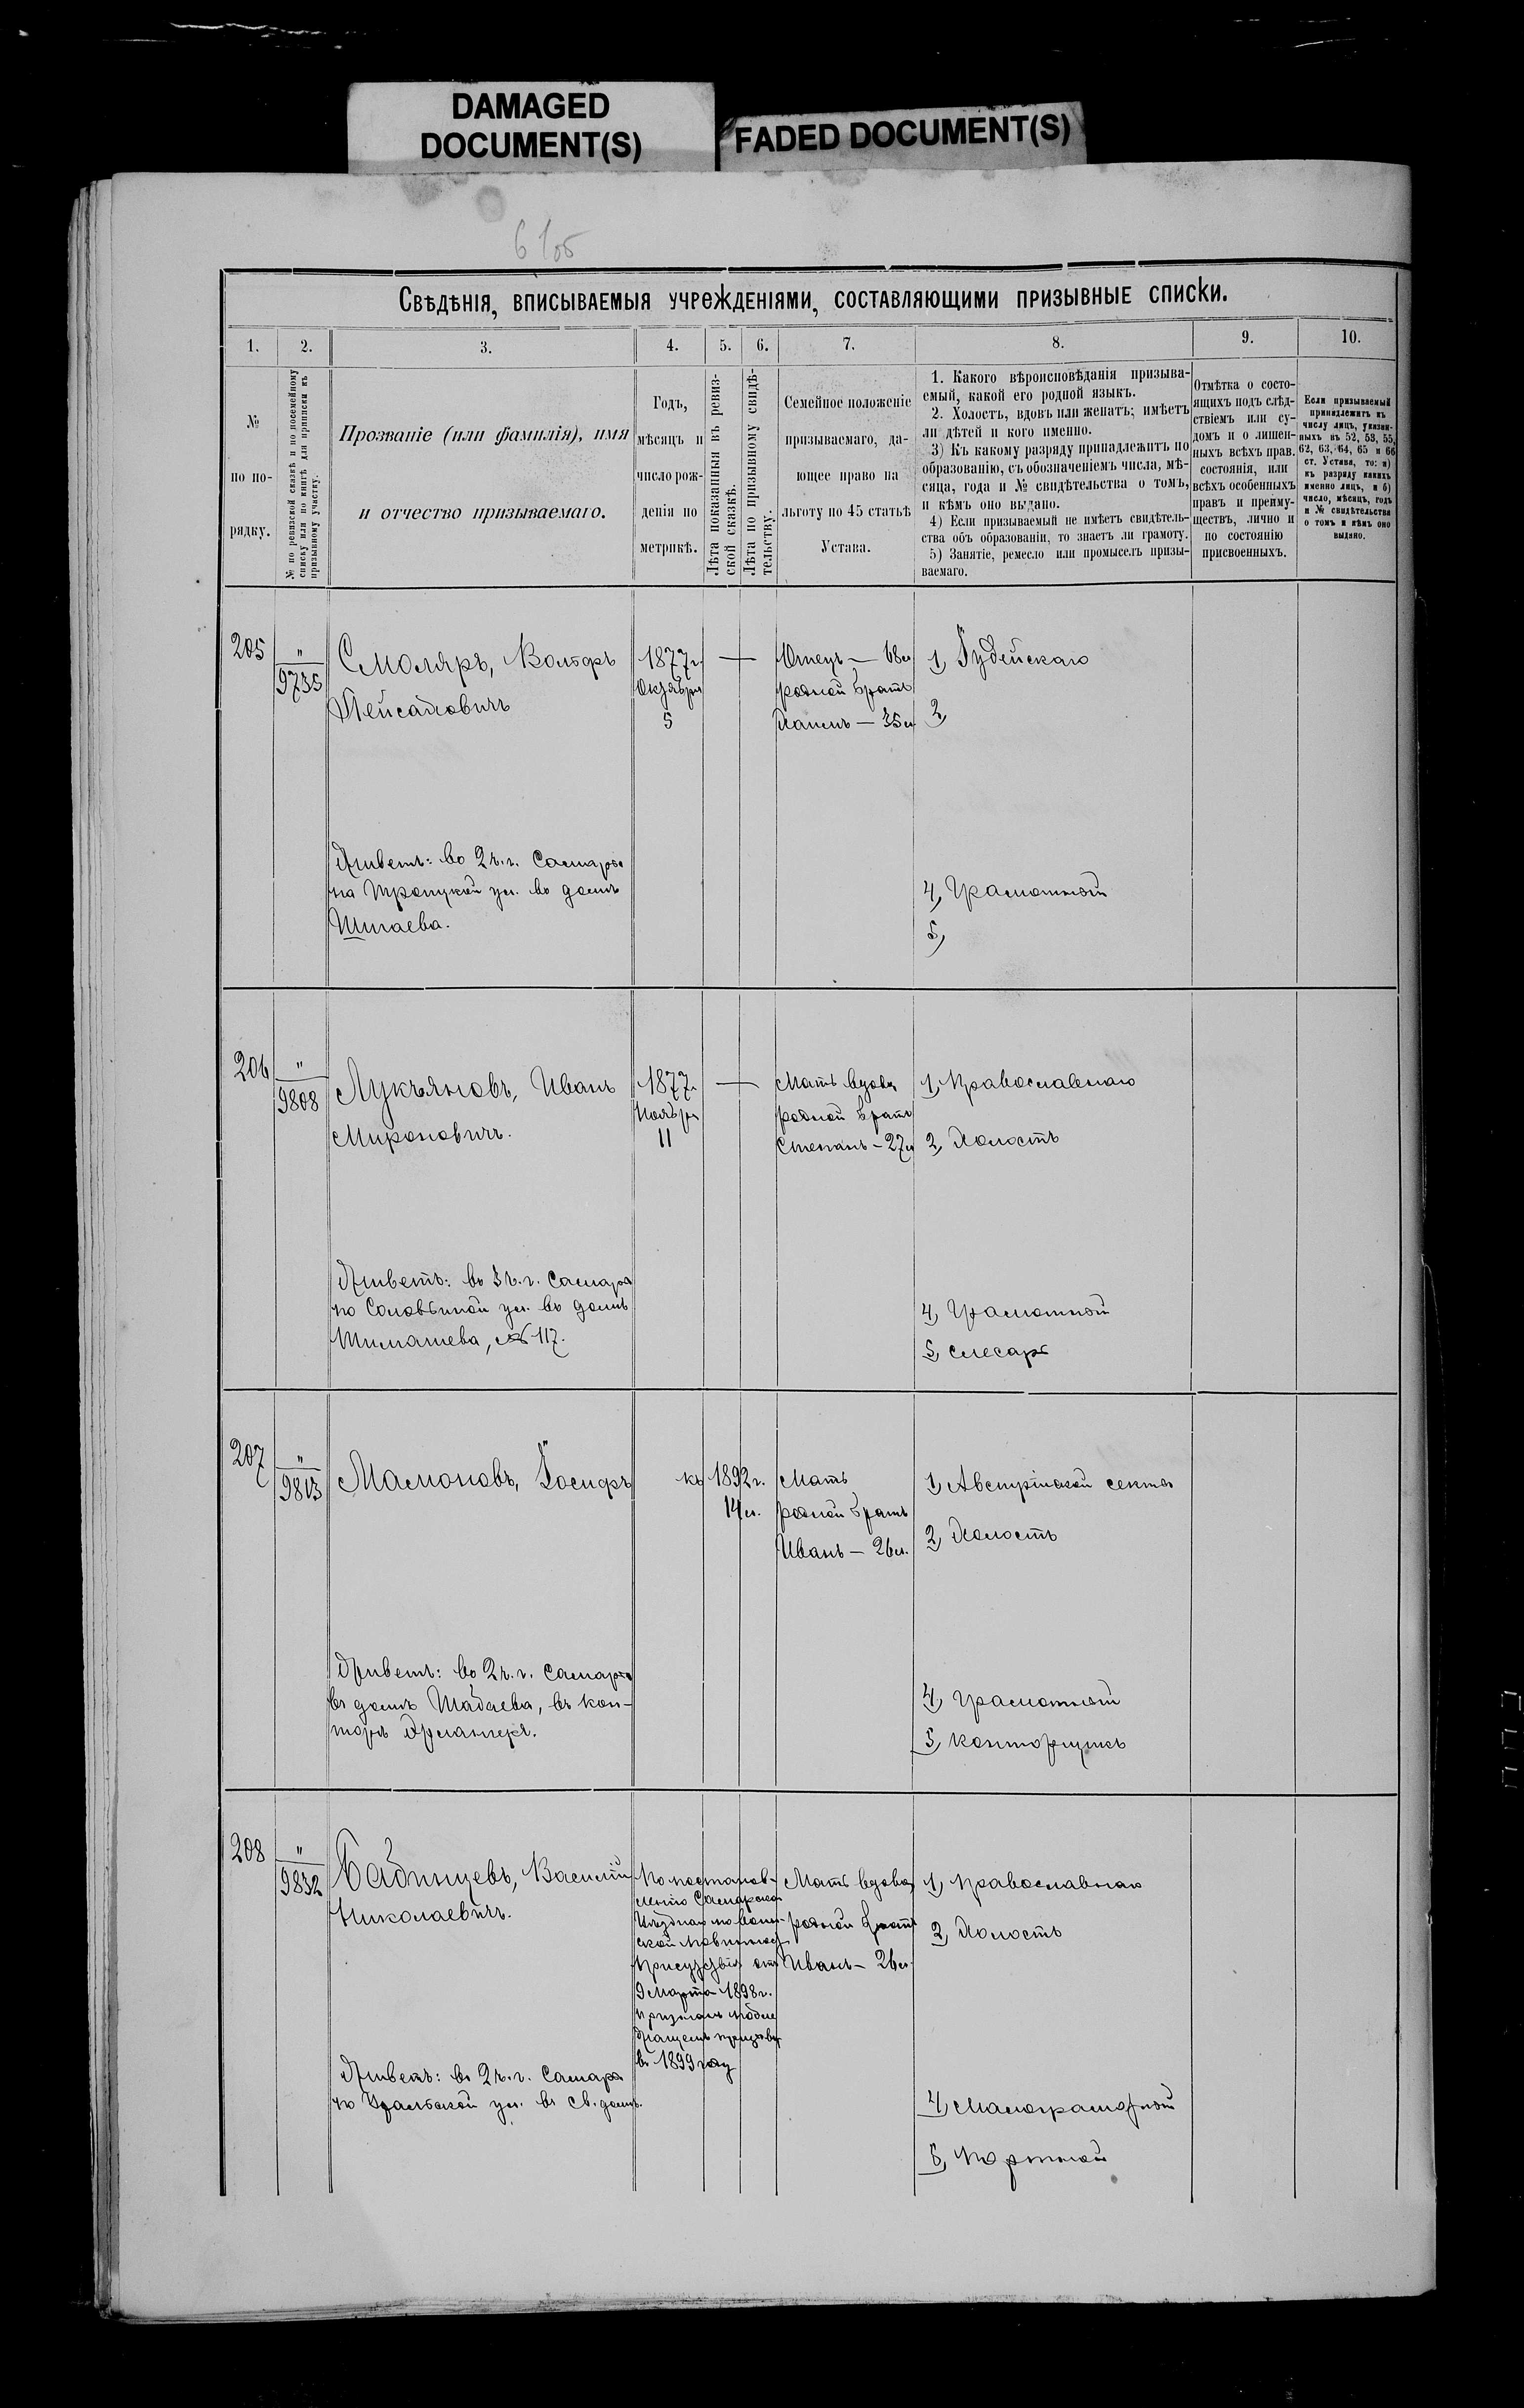 DAMAGED
DOCUMENT(S)
FADED DOCUMENT(S)
Свѣдѣнія, вписываемыя учрежденіями, составляющими призывные списки.
1. 2. 3. 4. 5. 6. 7. 8. 9. 10.
№
по по-
рядку.
№ по ревизской сказкѣ и по посемейному
списку или по книгѣ для приписки къ
призывному участку.
Прозваніе (или фамилія), имя
и отчество призываемаго.
Годъ,
мѣсяцъ и
число рож-
денія по
метрикѣ.
Лѣта показанныя въ ревиз-
ской сказкѣ.
Лѣта по призывному свидѣ-
тельству.
Семейное положеніе
призываемаго, да-
ющее право на
льготу по 45 статьѣ
Устава.
1. Какого вѣроисповѣданія призыва-
емый, какой его родной языкъ.
2. Холостъ, вдовъ или женатъ; имѣетъ
ли дѣтей и кого именно.
3) Къ какому разряду принадлежитъ по
образованію, съ обозначеніемъ числа, мѣ-
сяца, года и № свидѣтельства о томъ,
и кѣмъ оно выдано.
4) Если призываемый не имѣетъ свидѣтель-
ства объ образованіи, то знаетъ ли грамоту.
5) Занятіе, ремесло или промыселъ призы-
ваемаго.
Отмѣтка о состо-
ящихъ подъ слѣд-
ствіемъ или су-
домъ и о лишен-
ныхъ всѣхъ прав.
состоянія, или
всѣхъ особенныхъ
правъ и преиму-
ществъ, лично и
по состоянію
присвоенныхъ.
Если призываемый
принадлежитъ къ
числу лицъ, указан-
ныхъ въ 52, 53, 55,
62, 63, 64, 65 и 66
ст. Устава, то: а)
къ разряду какихъ
именно лицъ, и б)
число, мѣсяцъ, годъ
и № свидѣтельства
о томъ и кѣмъ оно
выдано.
205
"
9735
Смоляръ, Вольфъ
Пейсаховичъ
1877г.
Октября
5
Отецъ — 68л
родной братъ
— 35л
1, Іудейскаго
2,
Живетъ: во 2 ч. г. Самары
на Троицкой ул. въ домѣ
Шигаева.
4, Грамотный
5,
206
"
9808
Лукьяновъ, Иванъ
Мироновичъ.
1877г.
Ноября
11
Мать вдова
родной братъ
Степанъ - 27л
1, Православнаго
2, Холостъ
Живетъ: въ 3 ч. г. Самары
по Соловьиной ул. въ домѣ
Тимашева, № 117.
4, Грамотный
5, Слесарь
207
"
9813
Мамоновъ, Іосифъ
къ 1892г.
14л.
Мать
родной братъ
Иванъ — 26л.
1, Австрійской секты
2, Холостъ
Живетъ: во 2 ч. г. Самары
въ домѣ Шадаева, въ кон-
торѣ
4, Грамотный
5, Конторщикъ
208
"
9832
Василій
Николаевичъ.
По постанов-
ленію Самарскаго
Уѣзднаго по воин-
ской повинности
Присутствія отъ
9 Марта 1898г.
признанъ подле
жащимъ призыву
въ 1899 году
Мать вдова
родной братъ
Иванъ - 26л
1, Православнаго
2, Холостъ
Живетъ: въ 2 ч. г. Самары
по Уральской ул. въ св. домѣ.
4, Малограмотный
5, Портной